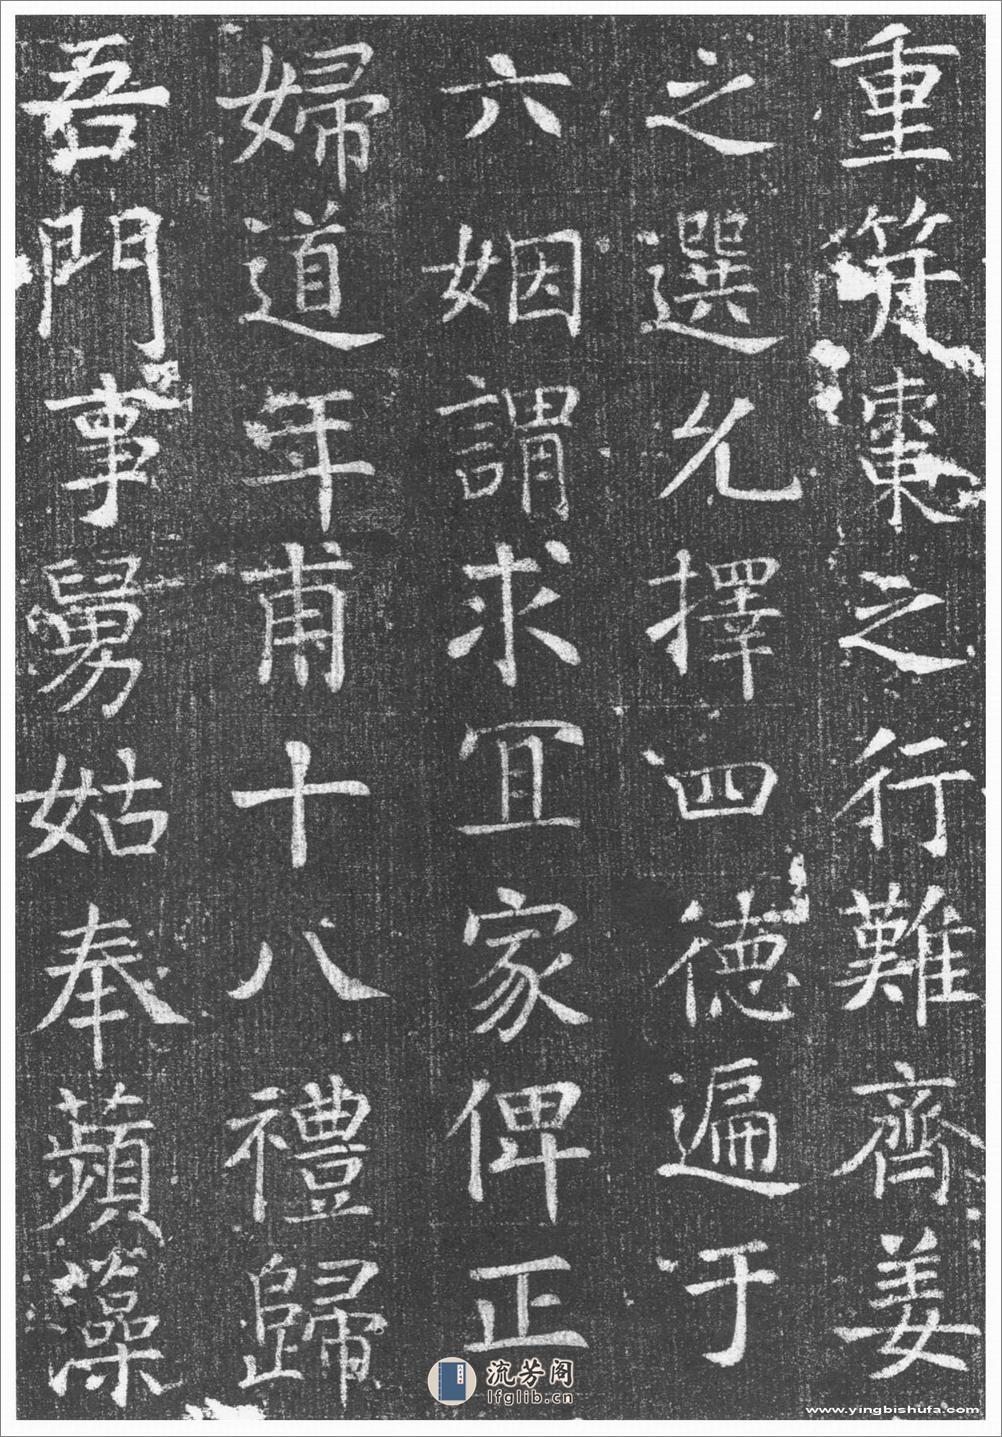 重笄棗之行難齊姜
之選允擇四德遍于
六姻謂求冝家俾正
婦道年甫十八禮歸
吾門事舅姑奉蘋藻
流芳阁
lfglib.cn
www.yingbishufa.com